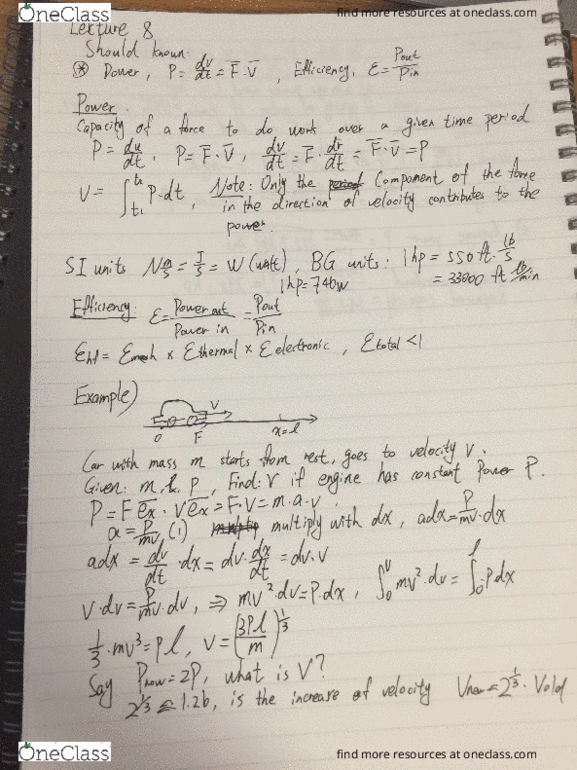 OneClass
find more resources at oneclass.com
Lecture 8
Should known:
⊛ Power, P = dv/dt = F̄·V̄, Efficiency, ε = Pout/Pin
Power
Capacity of a force to do work over a given time period
P = du/dt, P = F̄·V̄, dv/dt = F̄·dr̄/dt = F̄·V̄ = P
U = ∫t1^t2 P·dt, Note: Only the component of the force
in the direction of velocity contributes to the
power.
SI units N m/s = J/s = W (watt), BG units: 1 hp = 550 ft·lb/s
1 hp = 746 W = 33000 ft lb/min
Efficiency: ε = Power out/Power in = Pout/Pin
× εthermal × εelectronic, εtotal < 1
Example)
V
O F x=l
Car with mass m starts from rest, goes to velocity V.
Given: m, l, P, Find: V if engine has constant Power P.
P = F ēx · V ēx = F·V = m·a·v
a = P/mv (1) multiply with dx, adx = P/mv·dx
adx = dv/dt·dx = dv·dx/dt = dv·v
v·dv = P/mv·dv, ⇒ mv²·dv = P·dx, ∫0^v mv²·dv = ∫0^l Pdx
1/3·mv³ = Pl, V = (3Pl/m)^1/3
Say Pnow = 2P, what is V?
2^1/3 ≅ 1.26, is the increase of velocity Vnew = 2^1/3·Vold
OneClass
find more resources at oneclass.com